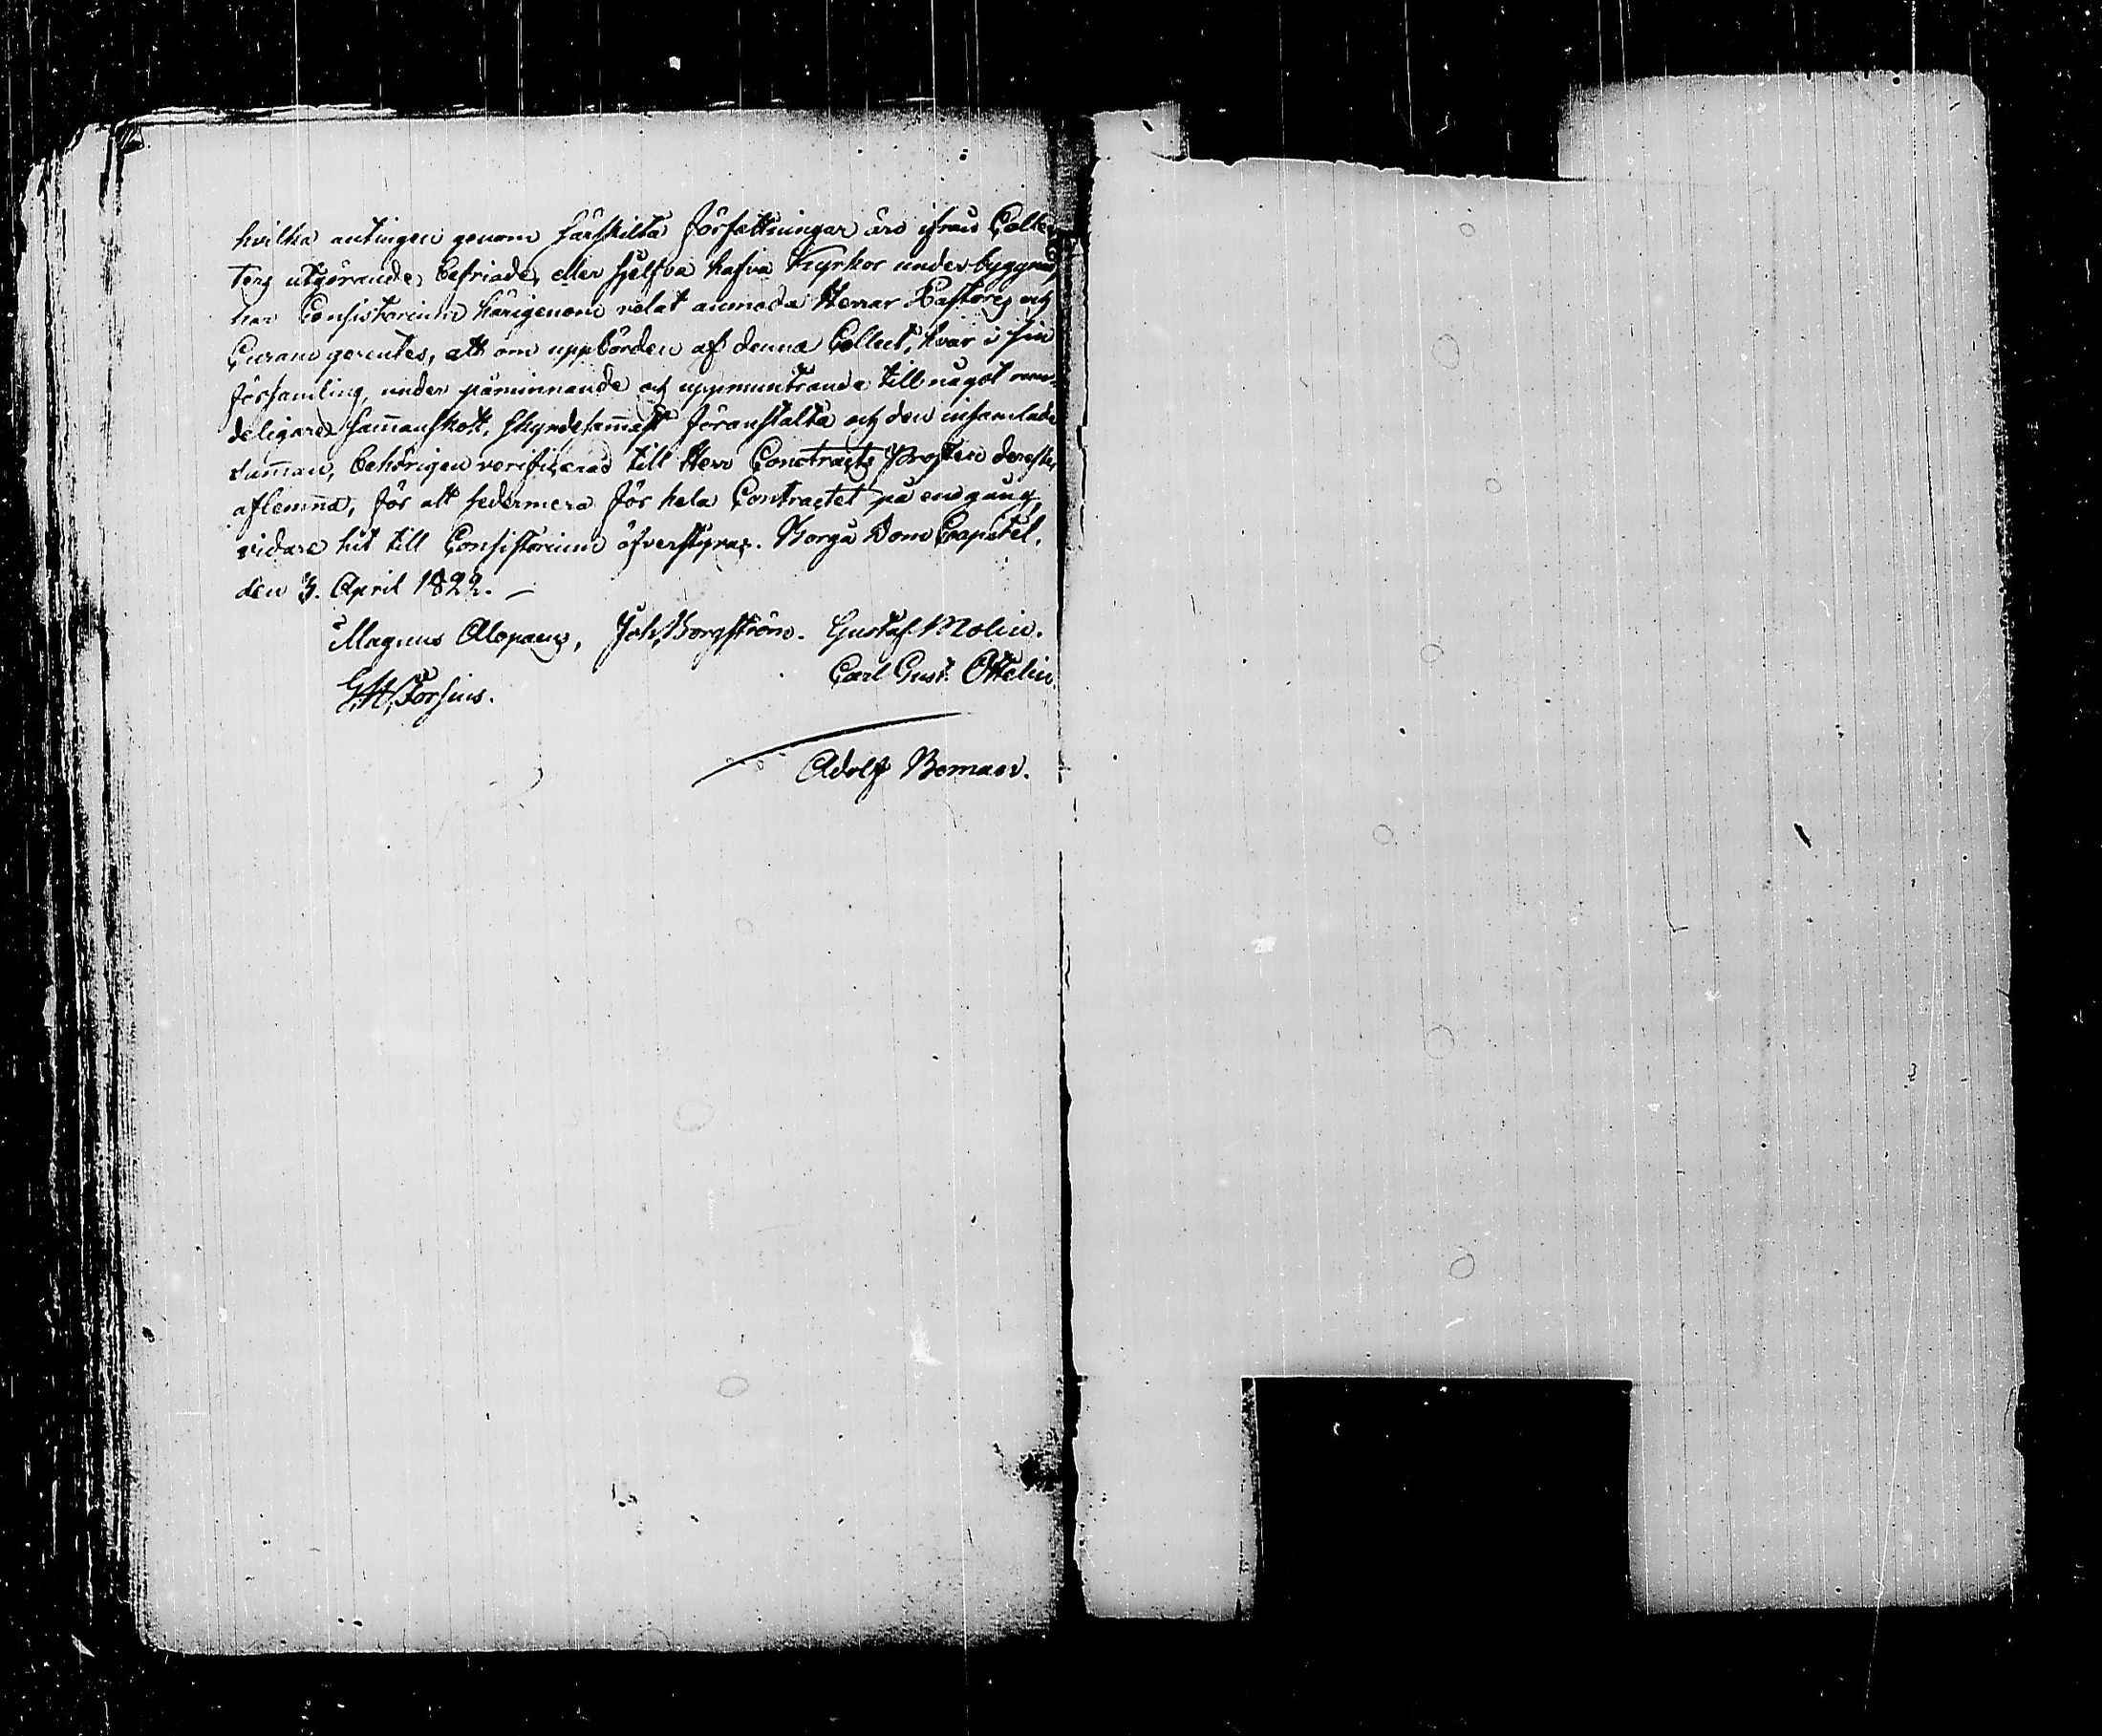 hvilka antingen genom särskilta författningar äro ifrån Collec¬
ters utgörande befriade, eller sjelfva hafva Kyrkor under byggnad,
har Consistorium härigenom velat anmoda Herrar Pastores och
Curam gerentes, att om uppbörden af denna Collect, hvar i sin
församling, under påminnande och uppmuntrande till något
deligare sam̄anskott, skyndsam̄ast föranstalta och den insamlade
sum̄an, behörigen verificerad till Herr Contracts Prosten derefter
aflem̄na, för att sedermera för hela Contractet på en gång,
vidare hit till Consistorium öfverstyras. Borgå Dom Capitel,
den 3. April 1822. —
Magnus Alopaeus, Joh. Borgström. Gustaf Molin.
Carl Gust. Ottelin.
G.H. Forsius.
Adolf Boman.